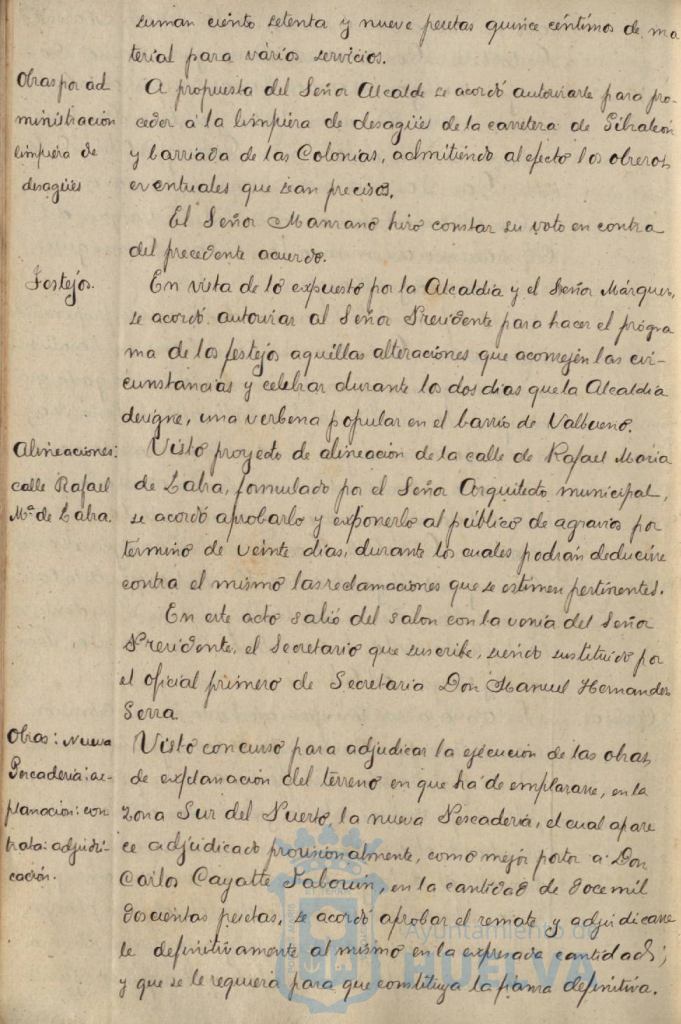 suman ciento setenta y nueve pesetas quince céntimos de ma
terial para vários servicios.
Obras por ad
ministración
limpieza de
desagües
A propuesta del Señor Alcalde se acordó autorizarle para pro-
ceder á la limpieza de desagües de la carretera de Gibraleón
y barriada de las Colonias, admitiendo al efecto los obreros
eventuales que sean precisos.
El Señor Manzano hizo constar su voto en contra
del precedente acuerdo.
Festejos.
En vista de lo expuesto por la Alcaldia y el Señor Márquez,
se acordó autorizar al Señor Presidente para hacer el progra
ma de los festejos aquellas alteraciones que aconsejen las cir-
cunstancias y celebrar durante los dos dias que la Alcaldia
designe, una verbena popular en el barrio de Valbueno.
Alineaciones:
calle Rafael
Mª de Labra.
Visto proyecto de alineación de la calle de Rafael Maria
de Labra, formulado por el Señor Arquitecto municipal,
se acordó aprobarlo y exponerlo al público de agravios por
termino de veinte dias, durante los cuales podrán deducirse
contra el mismo las reclamaciones que se estimen pertinentes.
En este acto salió del salon con la venia del Señor
Presidente, el Secretario que suscribe, siendo sustituido por
el oficial primero de Secretaria Don Manuel Hernandez
Serra.
Obras: Nueva
Pescaderia: ex-
planacion: con
trata: adjudi-
cación.
Visto concurso para adjudicar la ejecución de las obras
de explanación del terreno en que há de emplazarse, en la
zona Sur del Puerto, la nueva Pescaderia, el cual apare
ce adjudicado provisionalmente, como mejor postor a Don
Carlos Cayatte Tabouin, en la cantidad de doce mil
doscientas pesetas, se acordó aprobar el remate y adjudicarse
le definitivamente al mismo en la expresada cantidad;
y que se le requiera para que constituya la fianza definitiva.
Ayuntamiento de
HUELVA